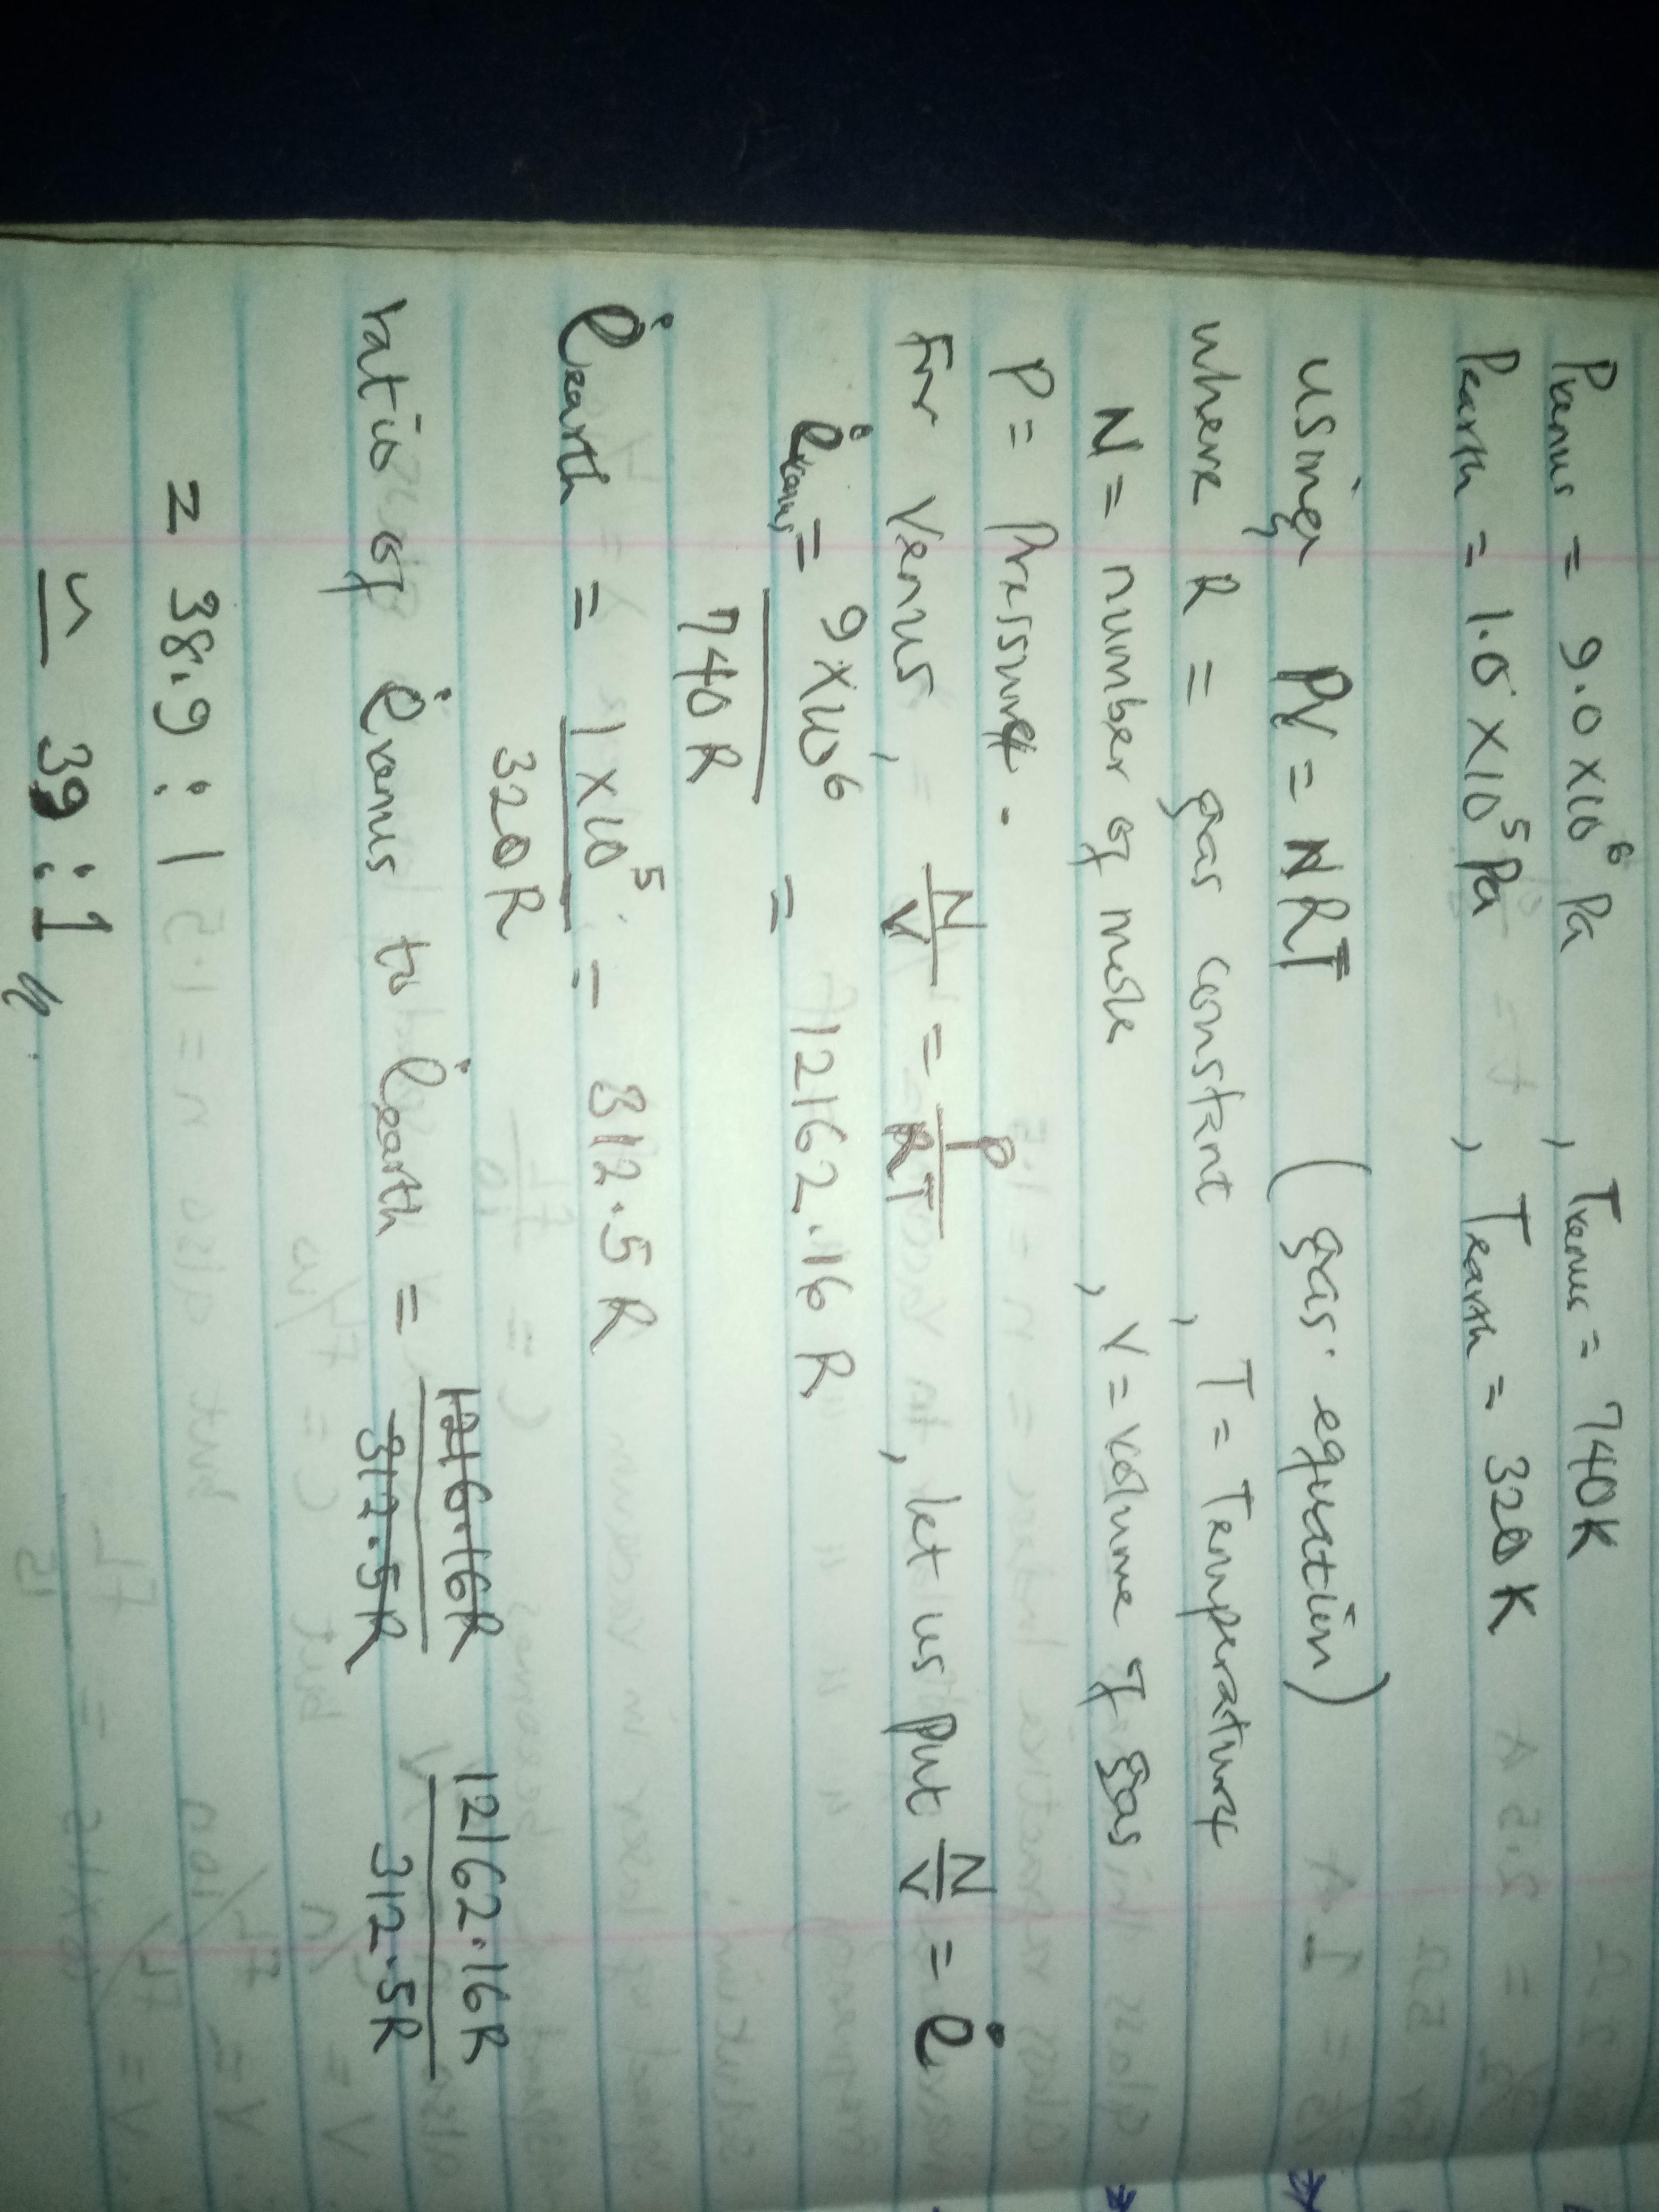 Pvenus = 9.0 × 10⁶ Pa , Tvenus = 740K
Pearth = 1.0 × 10⁵ Pa , Tearth = 320K
using PV = NRT (gas equation)
where R = gas constant , T = Temperature
N = number of mole , V = volume of gas
P = Pressure.
For Venus, N/V = P/RT , let us put N/V = ė
ėvenus = 9×10⁶/740R = 12162.16 R
ėearth = 1×10⁵/320R = 312.5 R
ratio of ėvenus to ėearth = 1216.16R/312.5R 12162.16R/312.5R
= 38.9 : 1
39 : 1